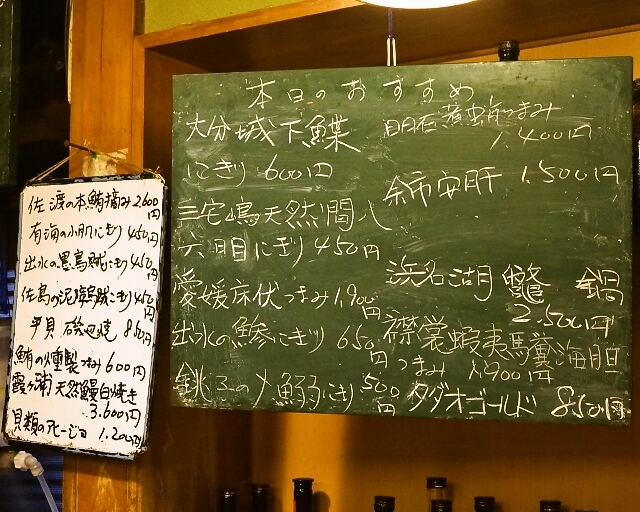 本日のおすすめ
大分城下鰈
にぎり 600円
三宅嶋天然間八
六日目にぎり 450円
愛媛床伏つまみ1,900円
出水の鯵にぎり 650円
銚子の〆鰯にぎり 500円
明石煮つまみ
1,400円
余市安肝 1,500円
浜名湖 鼈 鍋
2,500円
襟裳蝦夷馬糞海胆
つまみ 1,900円
タダオゴールド 850円
佐渡の本鮪摘み2600円
有海の小肌にぎり 450円
出水の墨烏賊にぎり 450円
佐島の泥障烏賊にぎり 450円
平貝 磯辺焼 850円
鮪の燻製つまみ 600円
霞ヶ浦天然鰻白焼き
3.600円
貝類のアヒージョ 1.200円